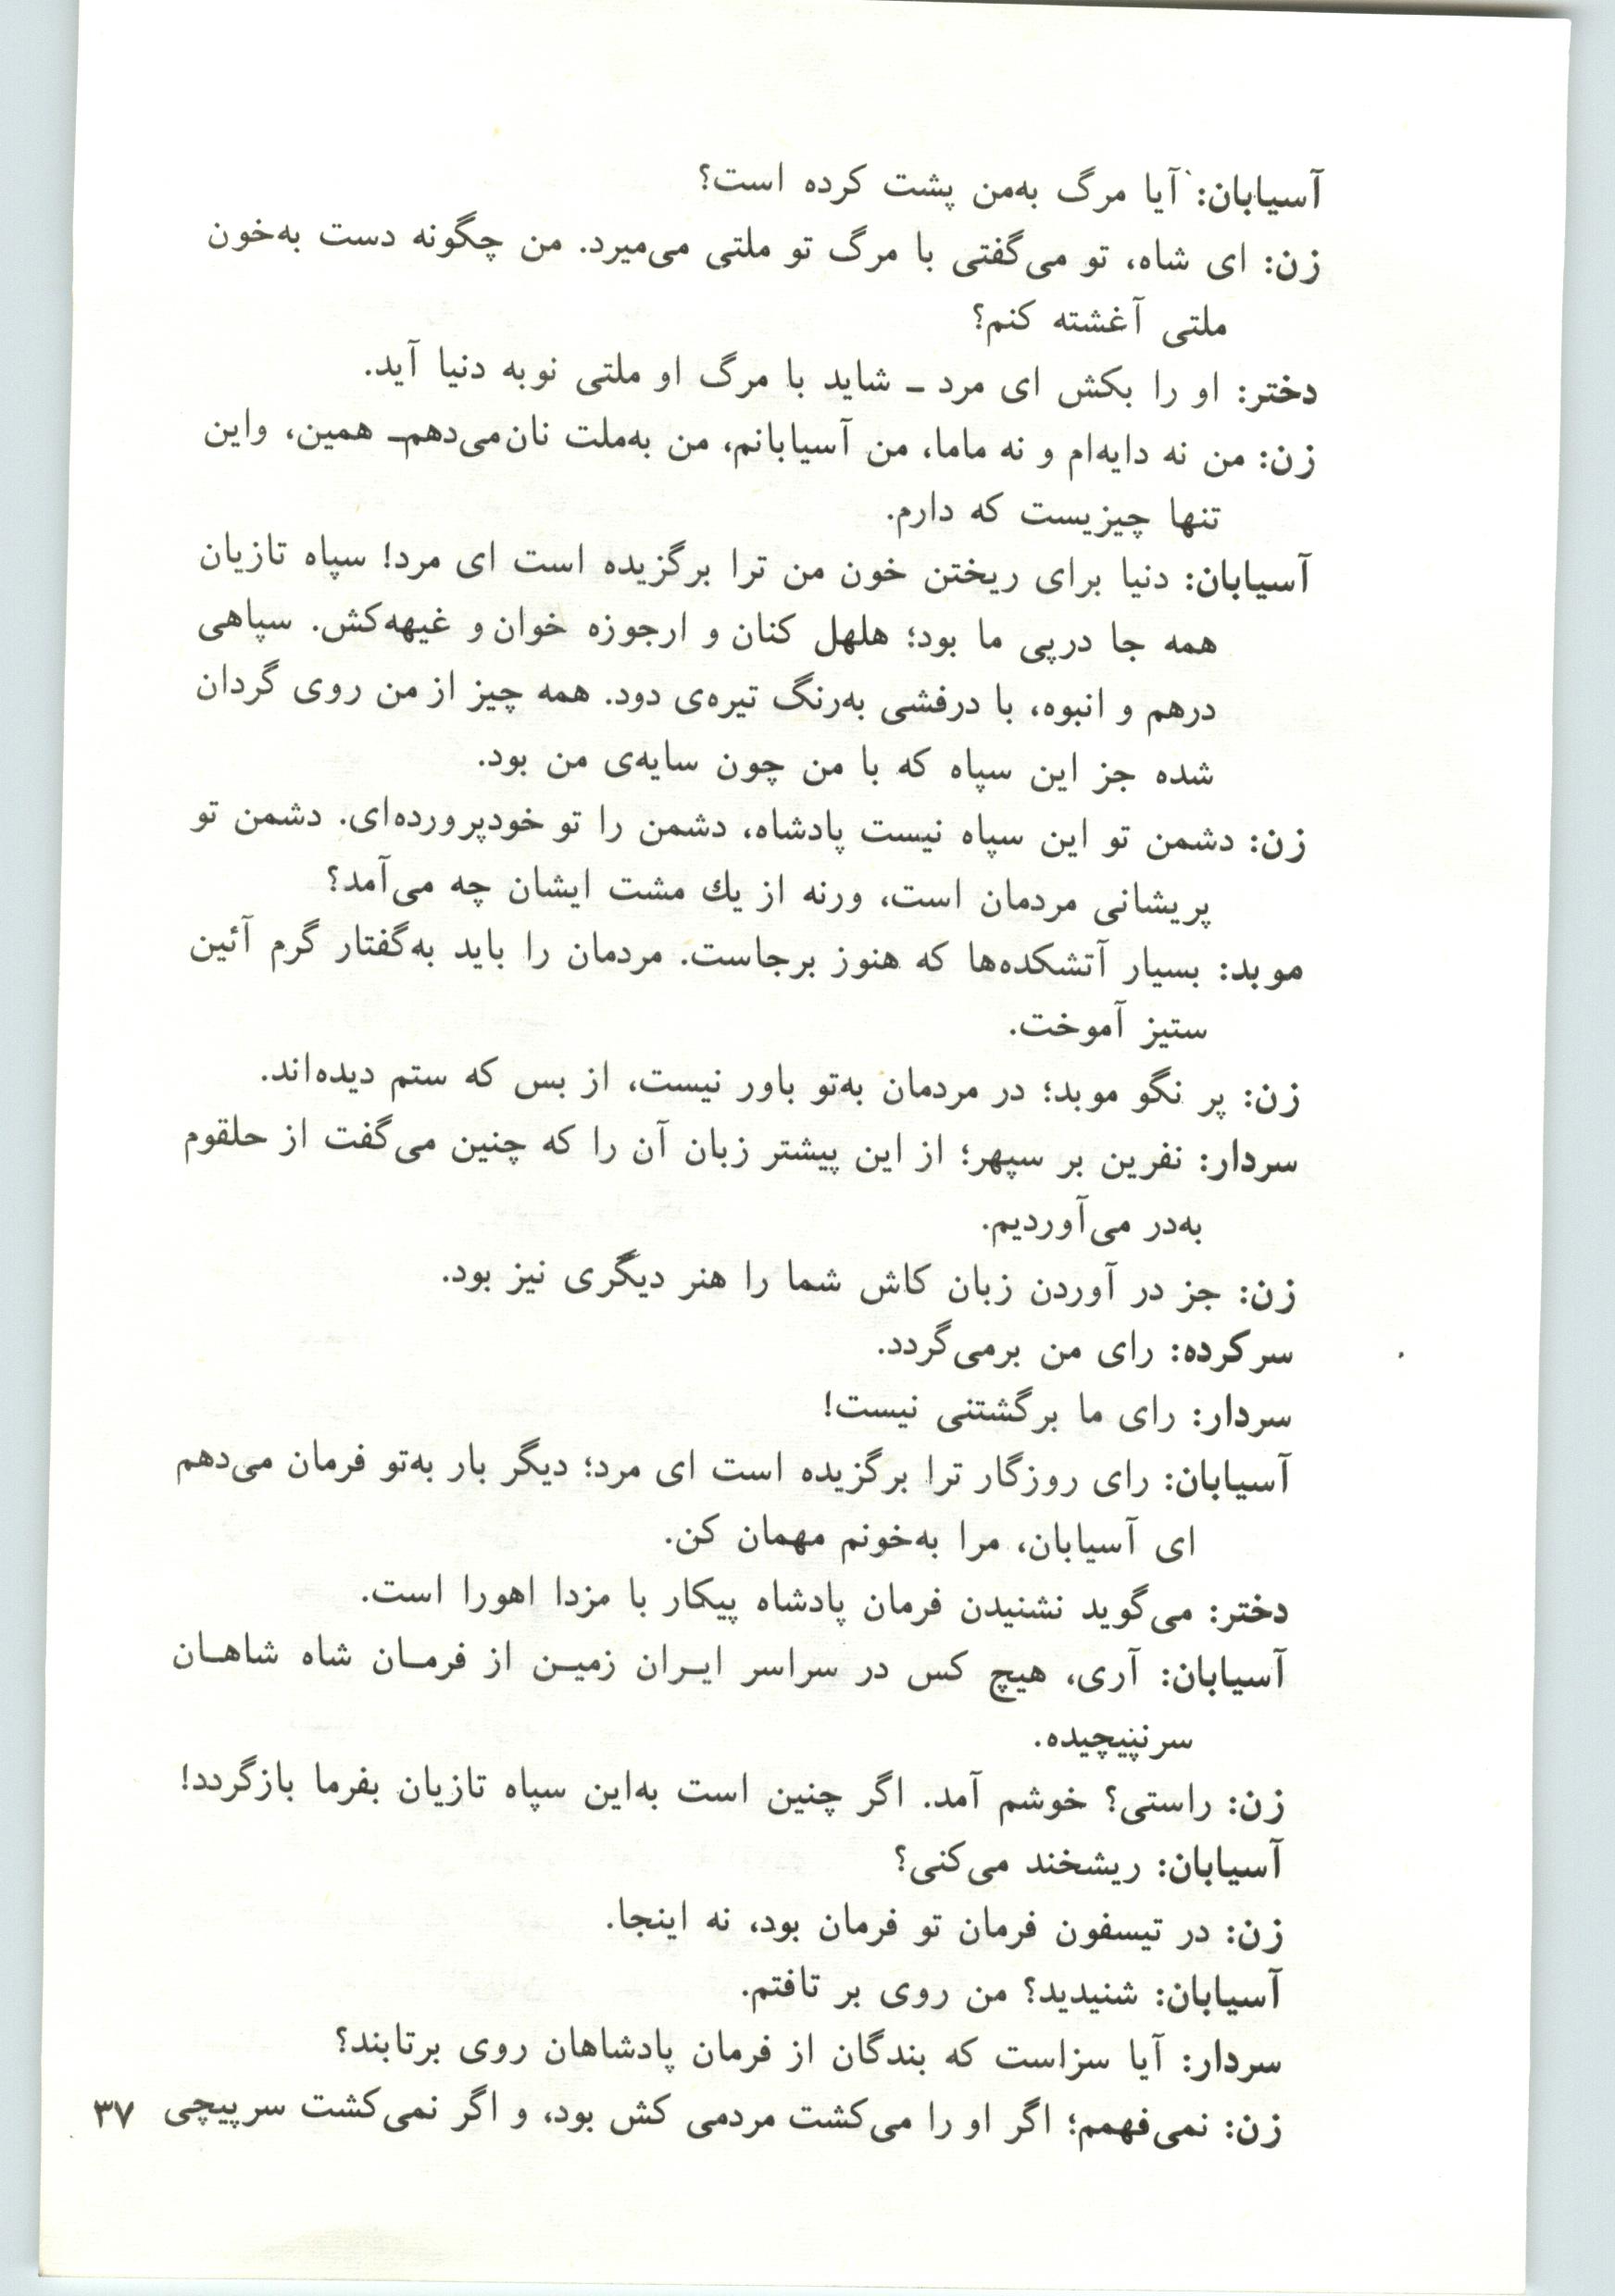 آسیابان: آیا مرگ به‌من پشت کرده است؟
زن: ای شاه، تو می‌گفتی با مرگ تو ملتی می‌میرد. من چگونه دست به‌خون
ملتی آغشته کنم؟
دختر: او را بکش ای مرد ـ شاید با مرگ او ملتی نوبه دنیا آید.
زن: من نه دایه‌ام و نه ماما، من آسیابانم، من به‌ملت نان‌می‌دهم‌ـ همین، واین
تنها چیزیست که دارم.
آسیابان: دنیا برای ریختن خون من ترا برگزیده است ای مرد! سپاه تازیان
همه جا درپی ما بود؛ هلهل کنان و ارجوزه خوان و غیهه‌کش. سپاهی
درهم و انبوه، با درفشی به‌رنگ تیره‌ی دود. همه چیز از من روی گردان
شده جز این سپاه که با من چون سایه‌ی من بود.
زن: دشمن تو این سپاه نیست پادشاه، دشمن را تو خودپرورده‌ای. دشمن تو
پریشانی مردمان است، ورنه از یك مشت ایشان چه می‌آمد؟
موبد: بسیار آتشکده‌ها که هنوز برجاست. مردمان را باید به‌گفتار گرم آئین
ستیز آموخت.
زن: پر نگو موبد؛ در مردمان به‌تو باور نیست، از بس که ستم دیده‌اند.
سردار: نفرین بر سپهر؛ از این پیشتر زبان آن را که چنین می‌گفت از حلقوم
به‌در می‌آوردیم.
زن: جز در آوردن زبان کاش شما را هنر دیگری نیز بود.
سرکرده: رای من برمی‌گردد.
سردار: رای ما برگشتنی نیست!
آسیابان: رای روزگار ترا برگزیده است ای مرد؛ دیگر بار به‌تو فرمان می‌دهم
ای آسیابان، مرا به‌خونم مهمان کن.
دختر: می‌گوید نشنیدن فرمان پادشاه پیکار با مزدا اهورا است.
آسیابان: آری، هیچ کس در سراسر ایـران زمیـن از فرمـان شاه شاهـان
سرنپیچیده.
زن: راستی؟ خوشم آمد. اگر چنین است به‌این سپاه تازیان بفرما بازگردد!
آسیابان: ریشخند می‌کنی؟
زن: در تیسفون فرمان تو فرمان بود، نه اینجا.
آسیابان: شنیدید؟ من روی بر تافتم.
سردار: آیا سزاست که بندگان از فرمان پادشاهان روی برتابند؟
زن: نمی‌فهمم؛ اگر او را می‌کشت مردمی کش بود، و اگر نمی‌کشت سرپیچی
۳۷